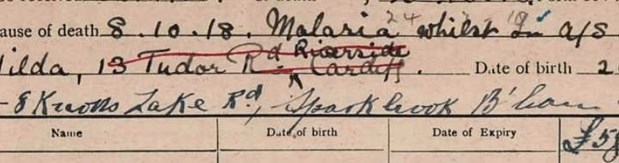 ause of death 8.10.18. Malaria 24 whilst in A/S
ilda, 13 Tudor Rd Riverside Cardiff. Date of birth 2
Lake Rd, Sparkbrook B'ham
Name Date of birth Date of Expiry £58